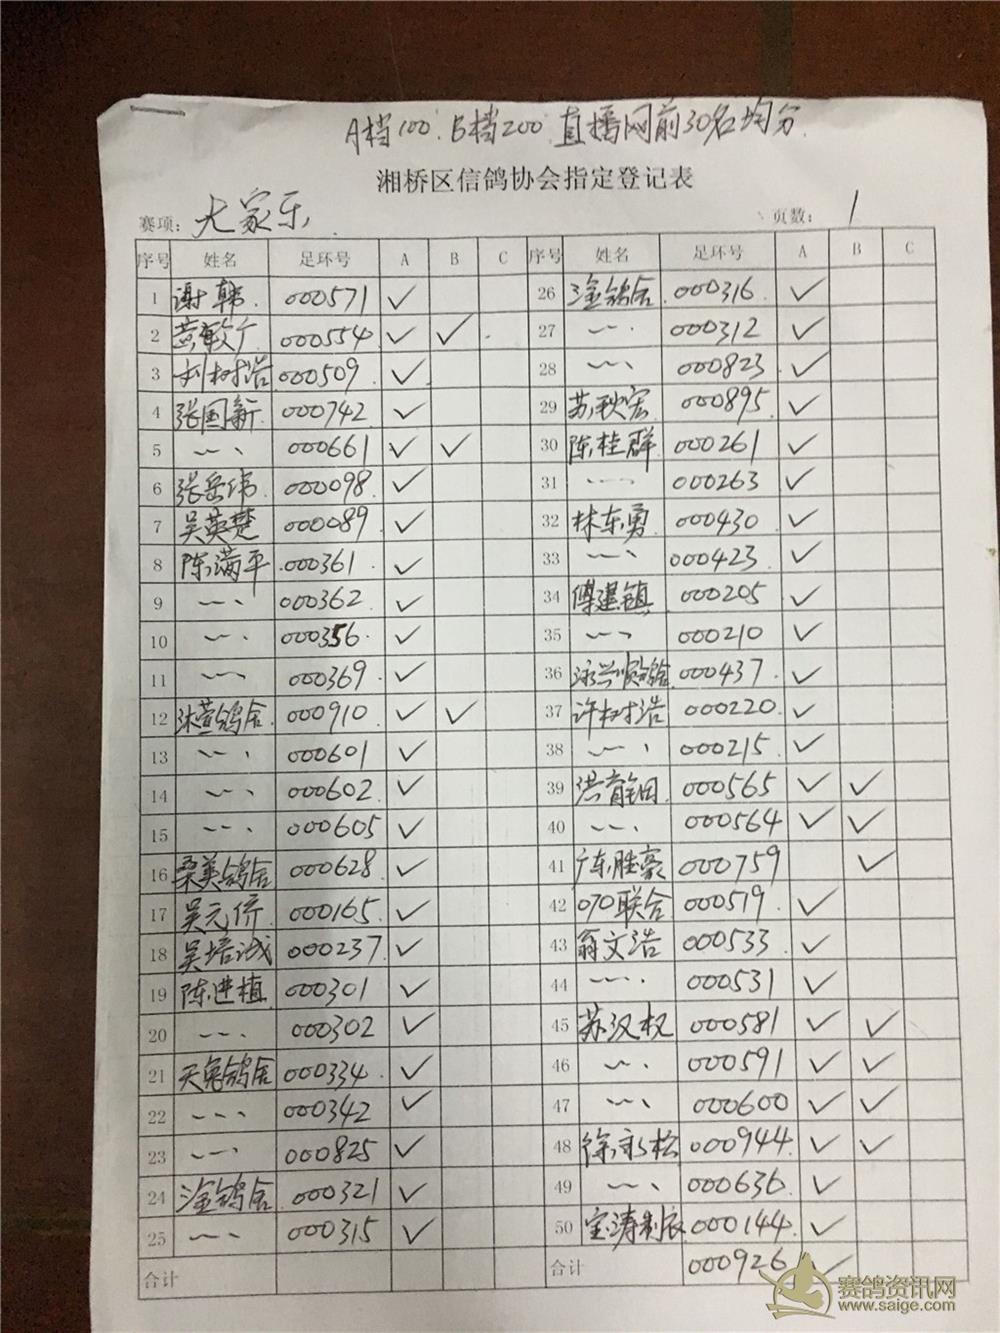 A档100. B档200 直播网前30名均分.
湘桥区信鸽协会指定登记表
赛项: 大家乐. 页数: 1
序号 姓名 足环号 A B C 序号 姓名 足环号 A B C
1 谢韩. 000571 ✓ 26 淦鸽舍 .000316 ✓
2 000554 ✓ ✓ 27 〃 000312 ✓
3 刘树浩 000509 ✓ 28 〃 000823 ✓
4 张国新 000742 ✓ 29 苏秋宏 000895 ✓
5 〃 000661 ✓ ✓ 30 陈桂群 000261 ✓
6 张岳伟 000098 ✓ 31 〃 000263 ✓
7 吴英楚 000089 ✓ 32 林东勇 000430 ✓
8 陈满平 .000361 ✓ 33 〃 000423 ✓
9 〃 000362 ✓ 34 傅建镇 000205 ✓
10 〃 000356 ✓ 35 〃 000210 ✓
11 〃 000369 ✓ 36 泳兴顺鸽舍 000437 ✓
12 沐萱鸽舍 000910 ✓ ✓ 37 许树浩 000220 ✓
13 〃 000601 ✓ 38 〃 000215 ✓
14 〃 000602 ✓ 39 洪 000565 ✓ ✓
15 〃 000605 ✓ 40 〃 000564 ✓ ✓
16 桑美鸽舍 000628 ✓ 41 广东胜豪 000759 ✓
17 吴元侨 000165 ✓ 42 070联合 000519 ✓
18 吴培诚 000237 ✓ 43 翁文浩 000533 ✓
19 陈进植 000301 ✓ 44 〃 000531 ✓
20 〃 000302 ✓ 45 苏汉权 000581 ✓ ✓
21 天兔鸽舍 000334 ✓ 46 〃 000591 ✓ ✓
22 〃 000342 ✓ 47 〃 000600 ✓ ✓
23 〃 000825 ✓ 48 徐永松 000944 ✓ ✓
24 淦鸽舍 000321 ✓ 49 〃 000636 ✓
25 〃 000315 ✓ 50 宝涛制衣 000144 ✓
合计 合计 000926 ✓
赛鸽资讯网
www.saige.com